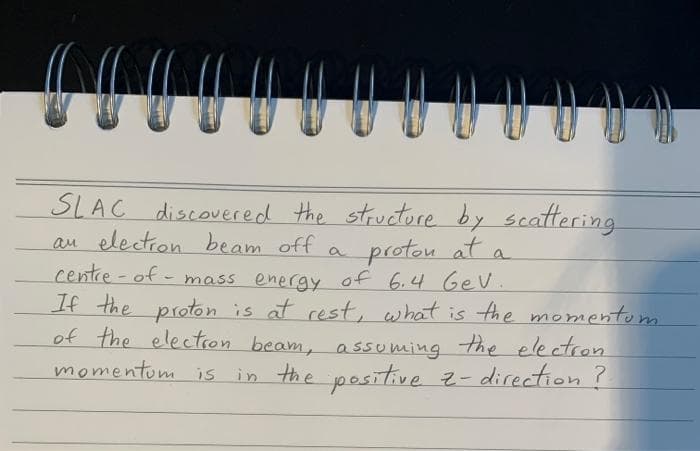 SLAC discovered the structure by scattering
an electron beam off a proton at a
centre-of-mass energy of 6.4 GeV.
If the proton is at rest, what is the momentum
of the electron beam, assuming the electron
momentum is in the positive z-direction?